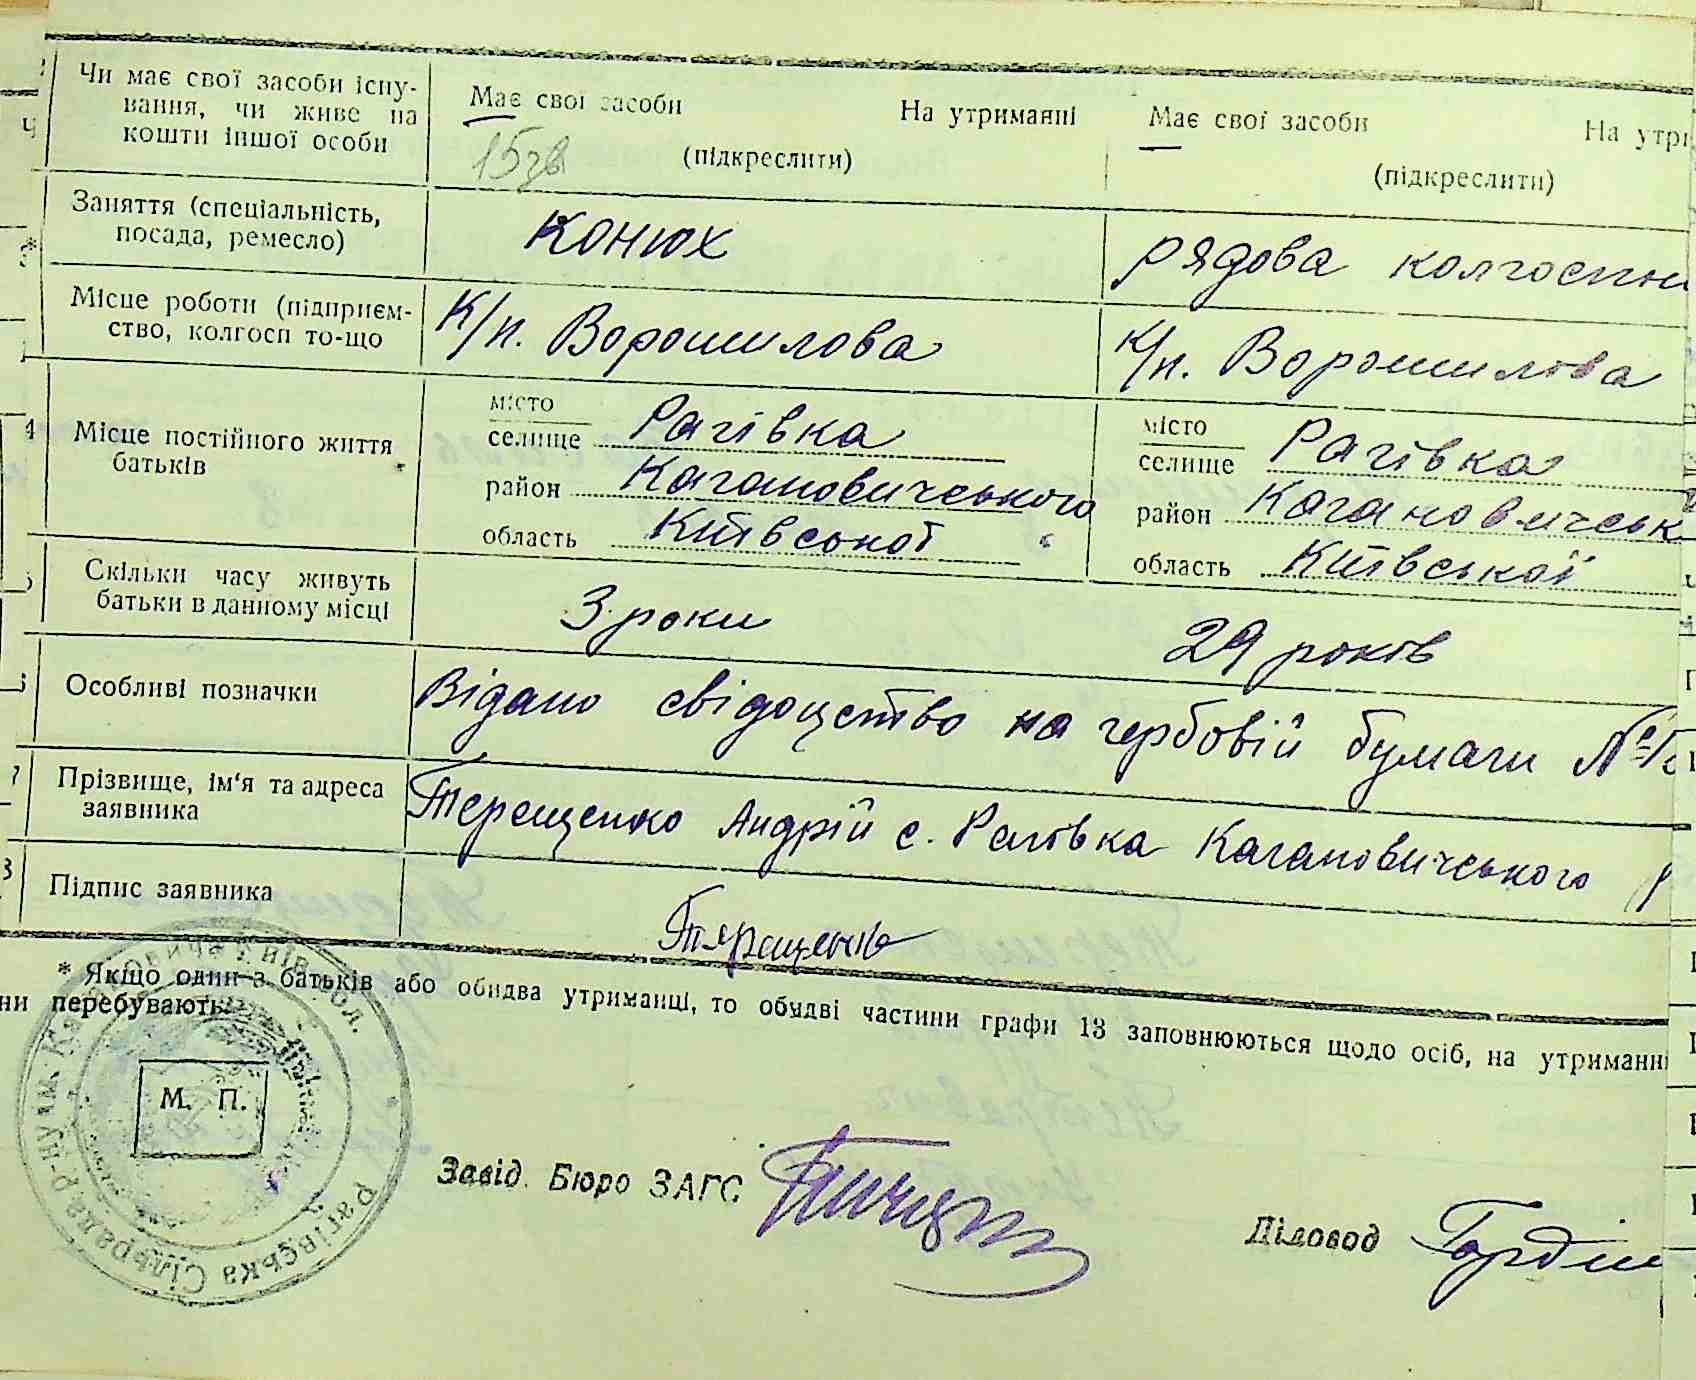 Чи має свої засоби існу-
вання, чи живе на
кошти іншої особи
Має свої засоби На утриманні
(підкреслити)
Має свої засоби На утри
(підкреслити)
Заняття (спеціальність,
посада, ремесло)
конюх
рядова колгоспн
Місце роботи (підприєм-
ство, колгосп то-що
К/п. Ворошилова
К/п. Ворошилова
4 Місце постійного життя
батьків
місто
селище Рагівка
район Кагановичського
область Київської
місто
селище Рагівка
район Кагановичськ
область Київської
Скільки часу живуть
батьки в данному місці
3 роки
29 років
Особливі позначки
Відано свідоцтво на гербовій бумаги №
7 Прізвище, ім'я та адреса
заявника
Терещенко Андрій с. Рагівка Кагановичського р
8 Підпис заявника
Терещенко
* Якщо один з батьків або обидва утриманці, то обидві частини графи 13 заповнюються щодо осіб, на утриманні
ни перебувають.
М. П.
Рагівська Сільрада
Завід. Бюро ЗАГС
Діловод Гордіє